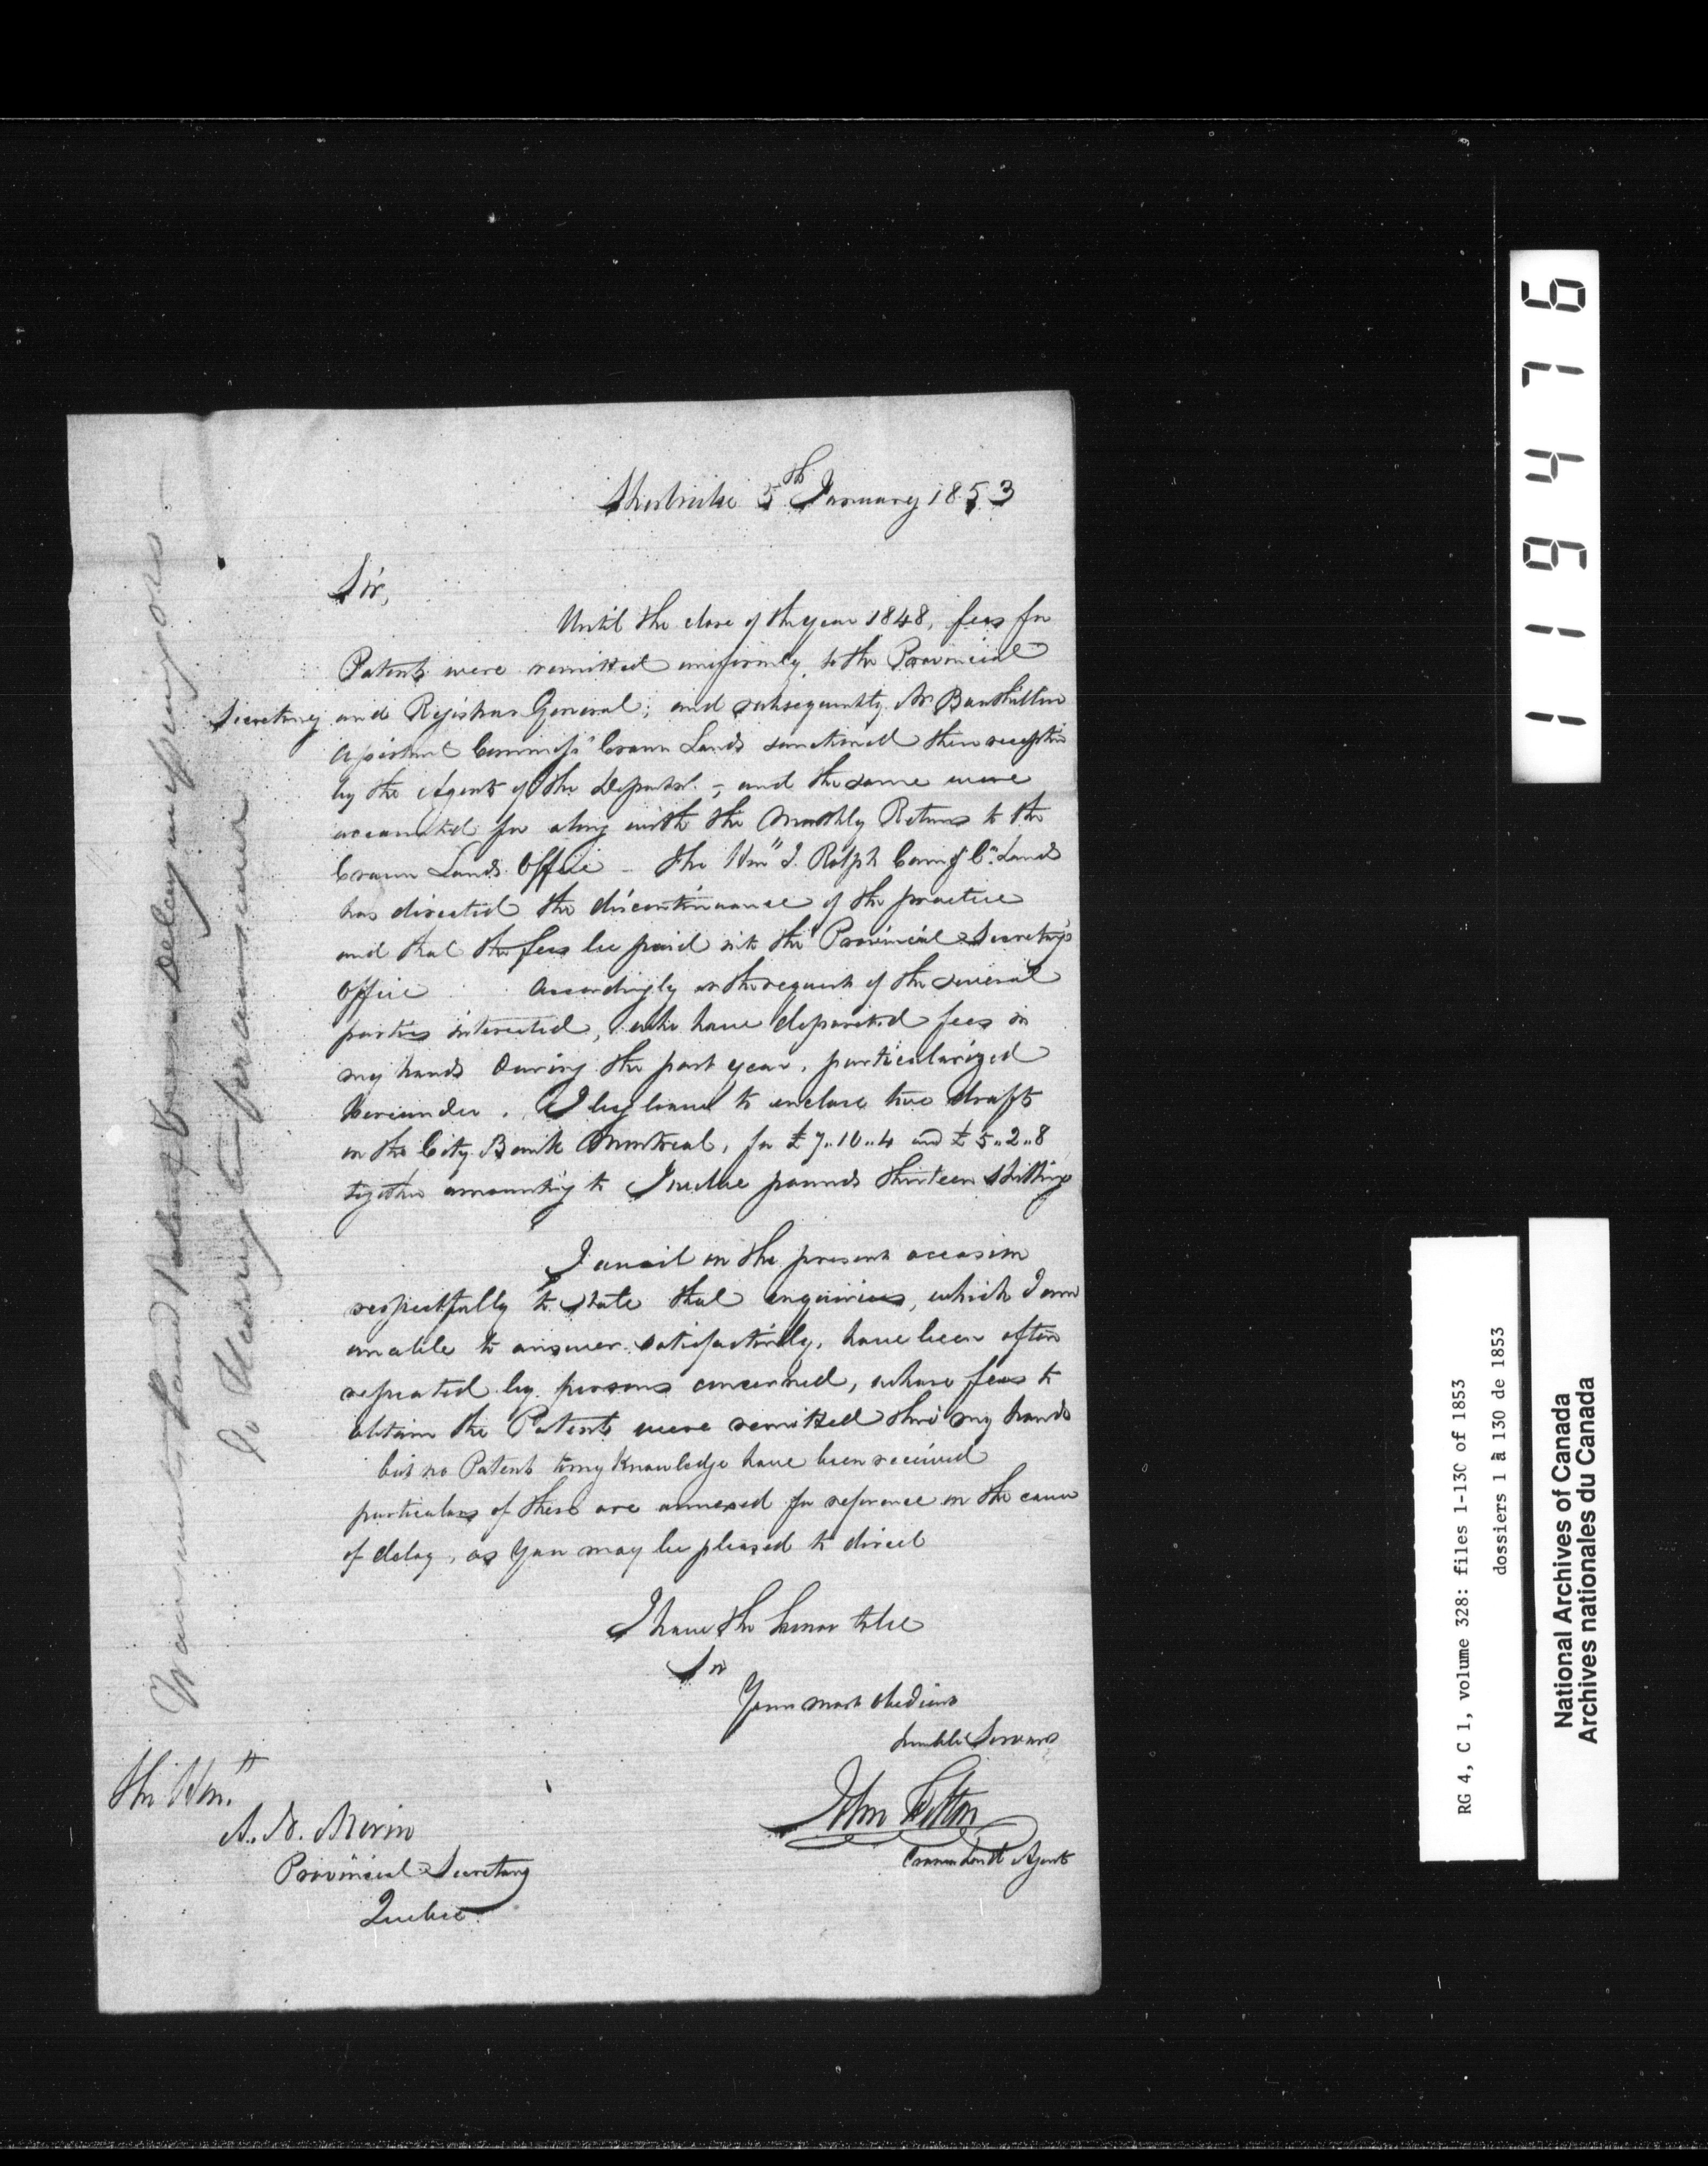 Sherbrooke 5th January 1853
Sir,
Until the close of the year 1848, fees for
Patents were remitted uniformly to the Provincial
Secretary and Registrar General; and subsequently Mr Bouthillier
Assistant Commissr Crown Lands sanctioned their reception
by the Agents of the Departt. ; and the same were
accounted for along with the Monthly Returns to the
Crown Lands Office – The Honll J. Rolph Comr of Cn. Lands
has directed the discontinuance of the practice
and that the fees be paid into the Provincial Secretary's
Office Accordingly on the request of the several
parties interested, who have deposited fees in
my hands during the past year, particularized
hereunder. I beg leave to enclose two drafts
on the City Bank Montreal, for £7..10..4 and £5..2..8
together amounting to Twelve pounds thirteen shillings
I avail on the present occasion
respectfully to state that enquiries, which I am
unable to answer satisfactorily, have been often
repeated by persons concerned, whose fees to
obtain the Patents were remitted thro' my hands
but no Patents to my Knowledge have been received
particulars of these are annexed for reference on the cause
of delay, as You may be pleased to direct
I have the honor to be
Sir
Your most obedient
humble Servant
John Felton
Crown Land Agent
The Honll.
A. N. Morin
Provincial Secretary
Quebec
Land Patents
delay
119476
RG 4, C 1, volume 328: files 1-130 of 1853
dossiers 1 à 130 de 1853
National Archives of Canada
Archives nationales du Canada